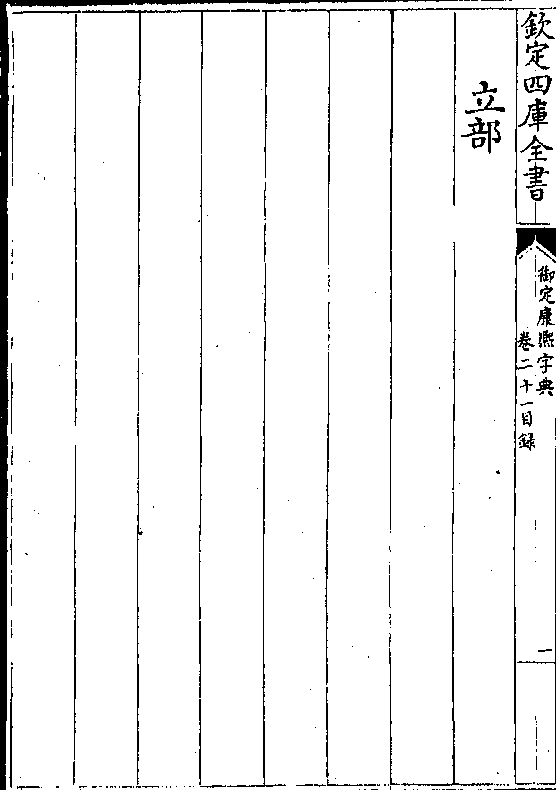 欽定四庫全書
御定康熙字典
卷二十一目錄
一
立部